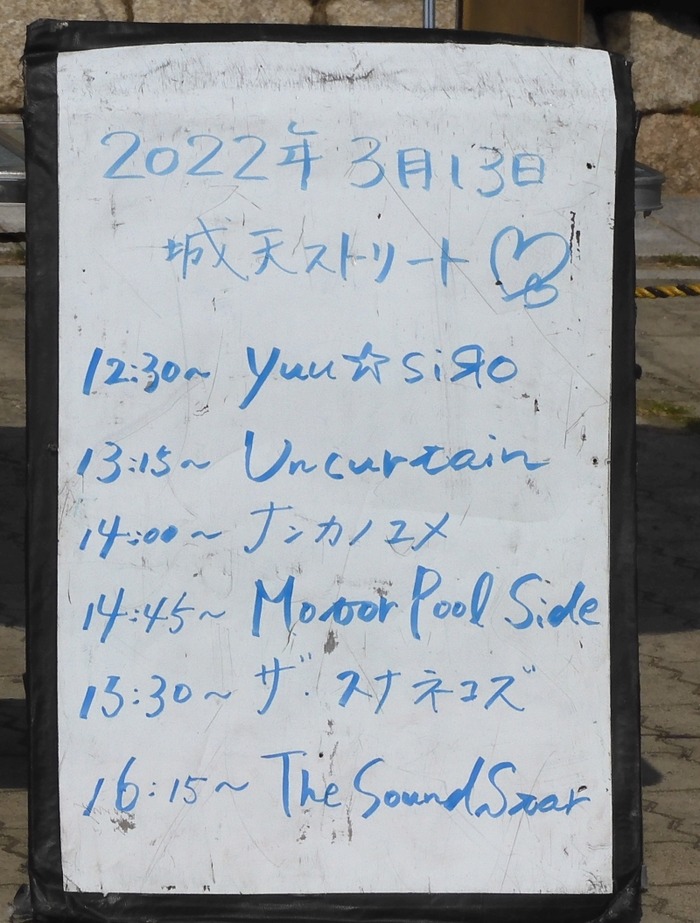 2022年 3月13日
城天ストリート
12:30~ Yuu☆siЯo
13:15~ Uncurtain
14:00~ ナンカノユメ
14:45~ Motor Pool Side
15:30~ ザ・スナネコズ
16:15~ The Sound Star